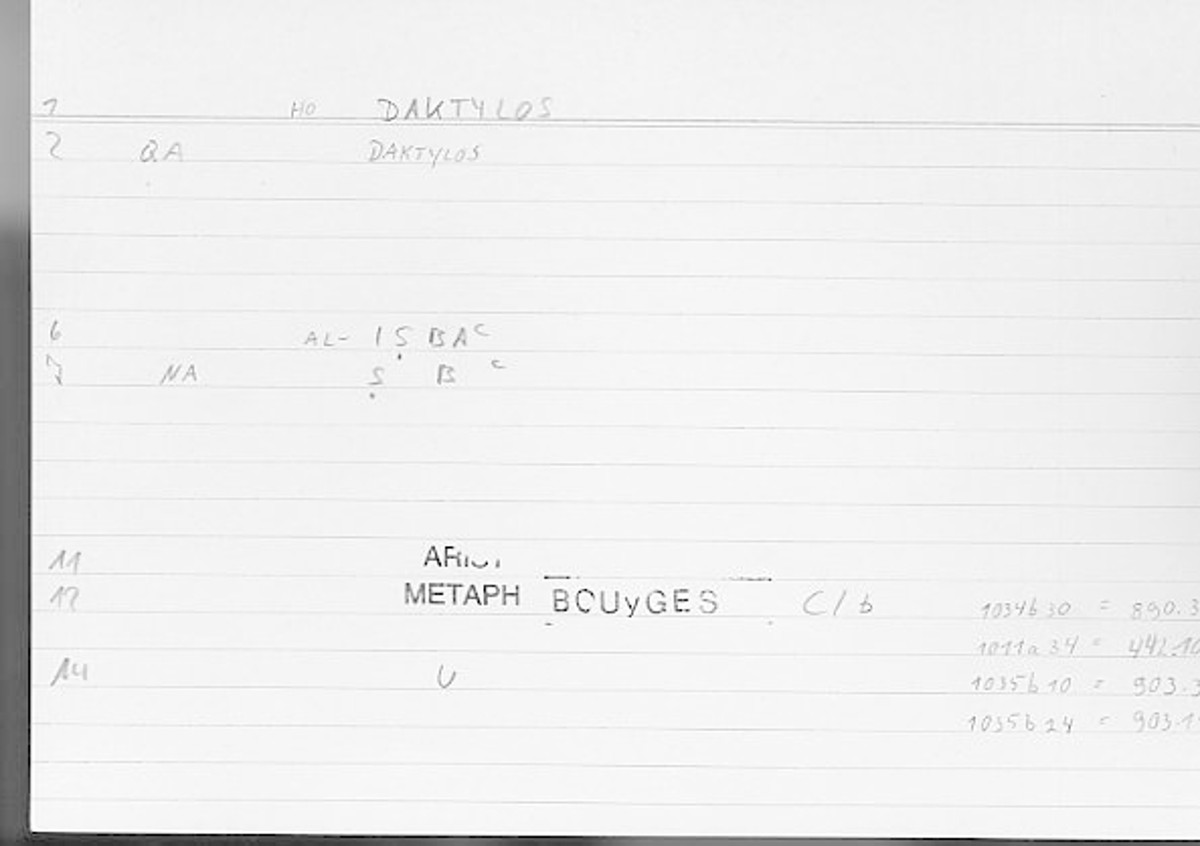 1 HO DAKTYLOS
2 QA DAKTYLOS
6 AL- IṢBAᶜ
7 NA Ṣ B ᶜ
11 ARIST
12 METAPH BOUyGES C/b 1034b30 = 890.3
1011a34 = 442.10
14 U 1035b10 = 903.3
1035b24 = 903.1